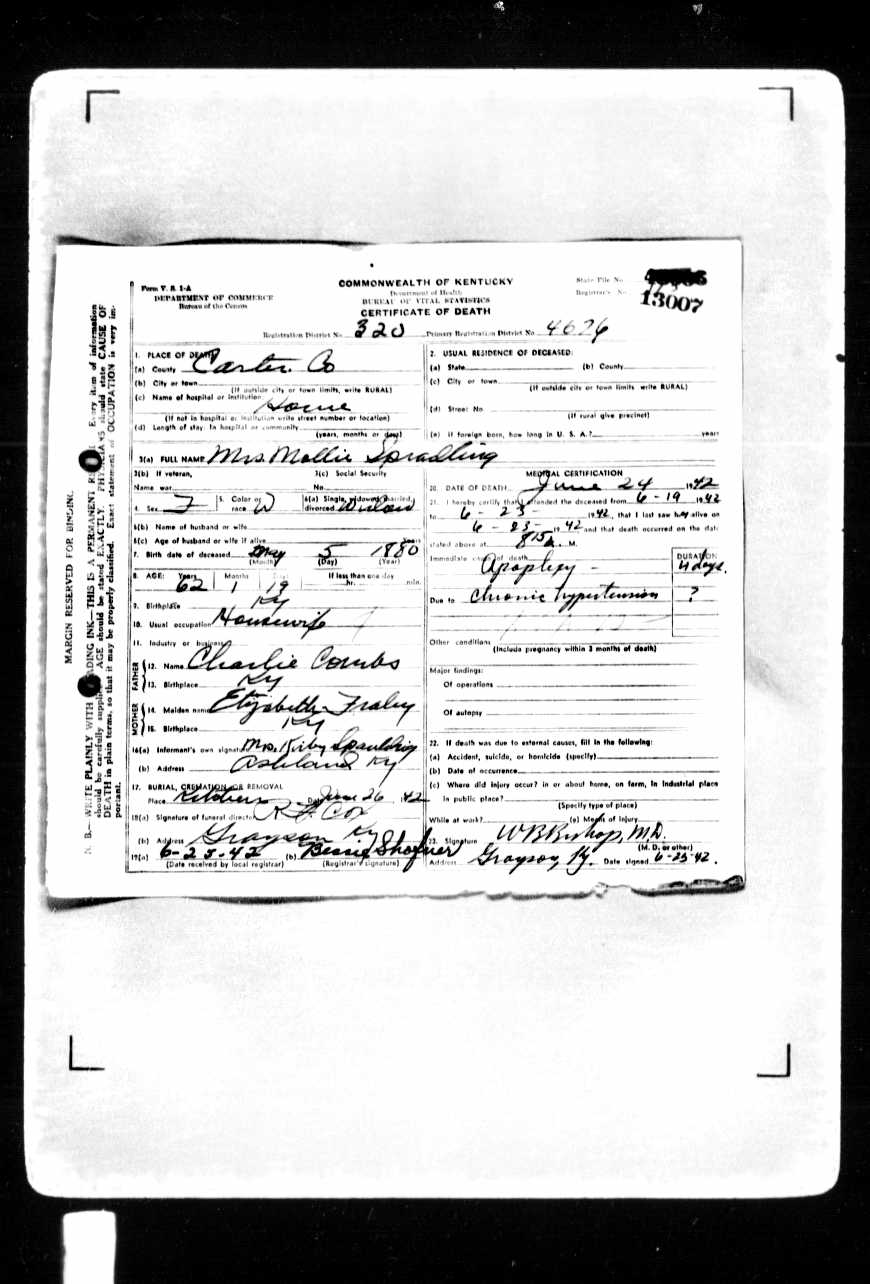 Form V. S. 1-A
DEPARTMENT OF COMMERCE
Bureau of the Census
COMMONWEALTH OF KENTUCKY
Department of Health
BUREAU OF VITAL STATISTICS
CERTIFICATE OF DEATH
State File No.
Registrar's No.
13007
Registration District No. 320 Primary Registration District No. 4676
MARGIN RESERVED FOR BINDING
N. B.—WRITE PLAINLY WITH FADING INK—THIS IS A PERMANENT Every item of information
should be carefully supplied. AGE should be stated EXACTLY. PHYSICIANS should state CAUSE OF
DEATH in plain terms, so that it may be properly classified. Exact statement of OCCUPATION is very im-
portant.
1. PLACE OF DEATH
(a) County Carter Co
(b) City or town
(If outside city or town limits, write RURAL)
(c) Name of hospital or institution
Home
(If not in hospital or institution write street number or location)
(d) Length of stay: In hospital or community
(years, months or days)
2. USUAL RESIDENCE OF DECEASED:
(a) State (b) County
(c) City or town
(If outside city or town limits write RURAL)
(d) Street No
(If rural give precinct)
(e) If foreign born, how long in U. S. A.? years
3(a) FULL NAME Mrs Mollie Spradling
3(b) If veteran,
Name war
3(c) Social Security
No.
4. Sex F 5. Color or race W 6(a) Single, widowed, married, divorced Widow
6(b) Name of husband or wife
6(c) Age of husband or wife if alive Years
7. Birth date of deceased May 5 1880
(Month) (Day) (Year)
8. AGE: Years 62 Months 1 Days 19 If less than one day hr. min.
9. Birthplace Ky
10. Usual occupation Housewife
11. Industry or business
FATHER
12. Name Charlie Combs
13. Birthplace Ky
MOTHER
14. Maiden name Elizabeth Fraley
15. Birthplace Ky
16(a) Informant's own signature Mrs. Kirby Spaulding
(b) Address Ashland Ky
17. BURIAL, CREMATION OR REMOVAL
Place Kitchen Date June 26 1942
18(a) Signature of funeral director R. F. Cox
(b) Address Grayson Ky
19(a) 6-25-42 (b) Bessie Shofner
(Date received by local registrar) (Registrar's signature)
MEDICAL CERTIFICATION
20. DATE OF DEATH June 24 1942
21. I hereby certify that I attended the deceased from 6-19 1942
to 6-23- 1942, that I last saw her alive on
6-23- 1942 and that death occurred on the date
stated above at 8 15 a. M.
Immediate cause of death
Apoplexy -
DURATION
4 days.
Due to Chronic hypertension ?
Other conditions
(Include pregnancy within 3 months of death)
Major findings:
Of operations
Of autopsy
22. If death was due to external causes, fill in the following:
(a) Accident, suicide, or homicide (specify)
(b) Date of occurrence
(c) Where did injury occur? in or about home, on farm, in industrial place
in public place?
(Specify type of place)
While at work? (e) Means of injury
23. Signature W B Bishop, M.D.
(M. D. or other)
Address Grayson, Ky. Date signed 6-25-42.